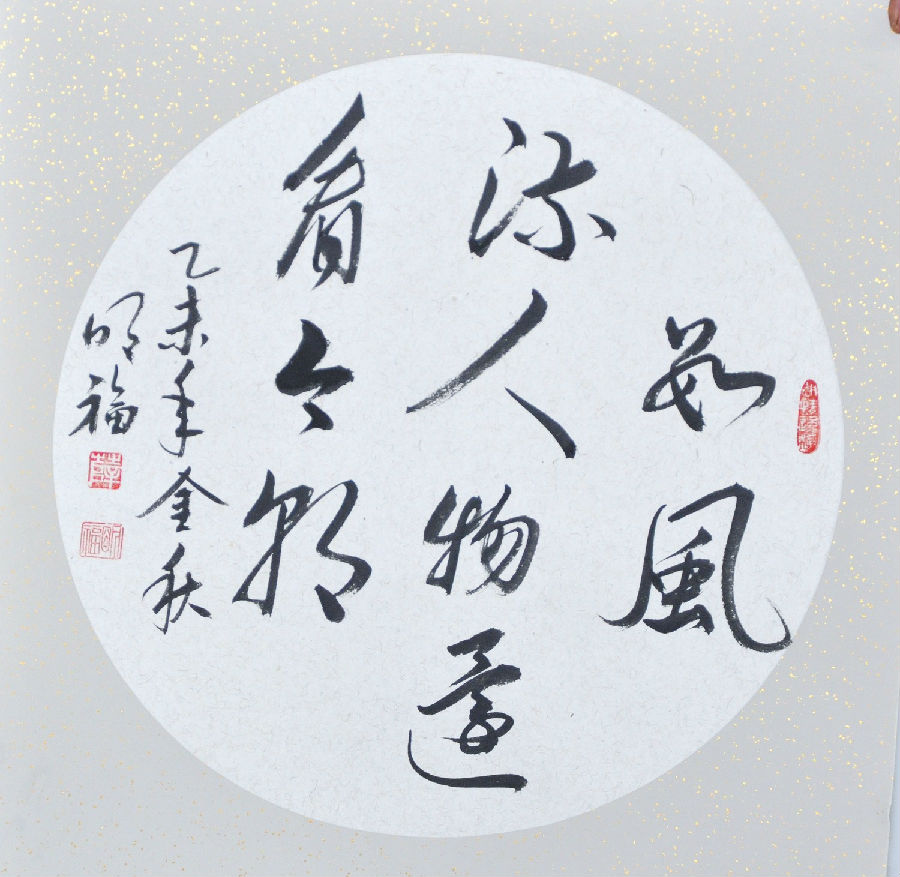 数風
流人物還
看今朝
乙未年金秋
明福
明福